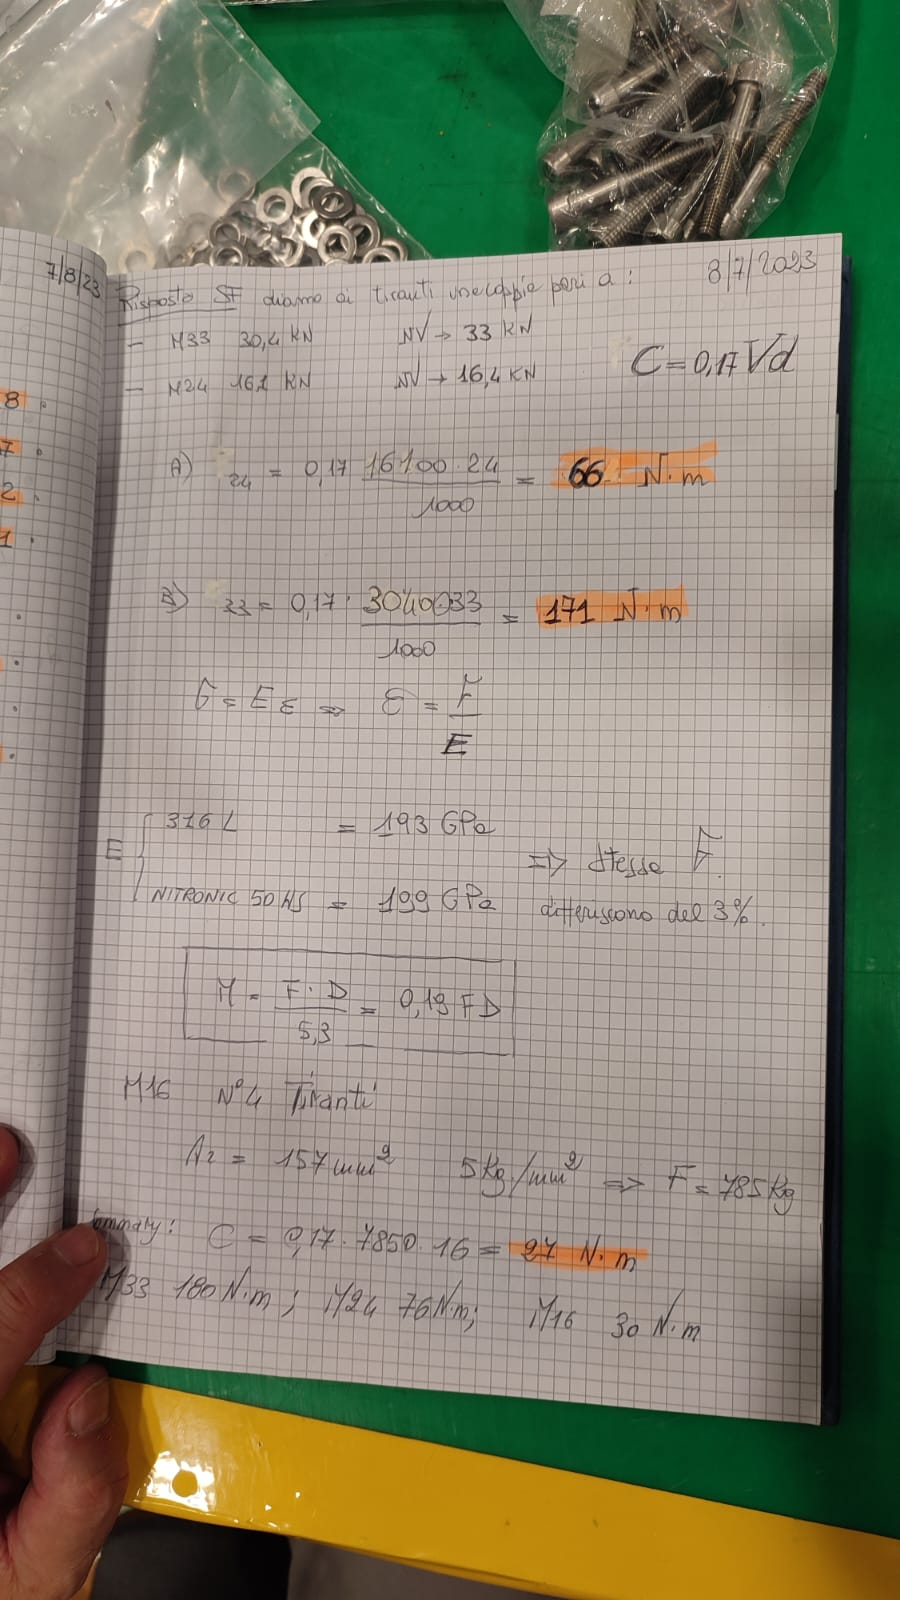 7/8/23
8
7
2
1
8/7/2023
Risposta SF diamo ai tiranti una coppia pari a:
- M33 30,4 KN NV → 33 KN
- M24 16,1 KN NV → 16,4 KN
C = 0,17 Vd
A) 24 = 0,17 16100·24 / 1000 = 66 N·m
B) 33 = 0,17 · 30400·33 / 1000 = 171 N·m
σ = E ε ⇒ ε = F / E
E { 316 L = 193 GPa
NITRONIC 50 HS = 199 GPa
⇒ stessa F.
differiscono del 3%.
M = F·D / 5,3 = 0,19 FD
M16 N°4 Tiranti
Ar = 157 mm² 5 Kg/mm² ⇒ F = 785 Kg
C = 0,17·7850·16 = 27 N·m
M33 180 N·m; M24 76 N·m; M16 30 N·m